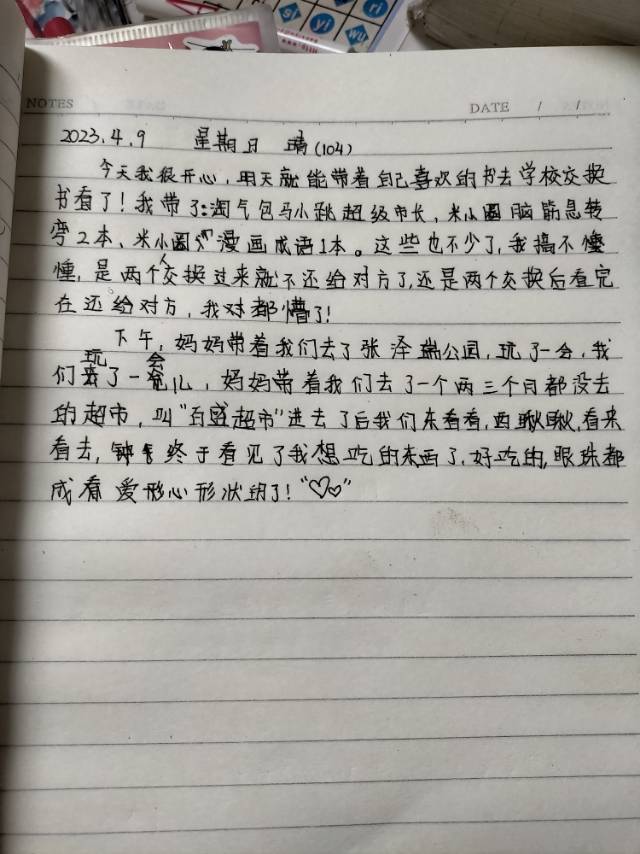 si
yi
ri
wu
NOTES
DATE / /
2023.4.9 星期日 晴(104)
今天我很开心,明天就能带着自己喜欢的书去学校交换
书看了!我带了:淘气包马小跳超级市长,米小圈脑筋急转
弯2本、米小圈漫画成语1本。这些也不少了,我搞不懂
懂,是两个人交换过来就不还给对方了,还是两个交换后看完
在还给对方,我对都懵了!
下午,妈妈带着我们去了张泽瑞公园,玩了一会,我
们玩了一会儿,妈妈带着我们去了一个两三个月都没去
的超市,叫“百盛超市”进去了后我们东看看,西瞅瞅,看来
看去,终于看见了我想吃的东西了,好吃的,眼珠都
成看爱形心形状的了!“♡♡”